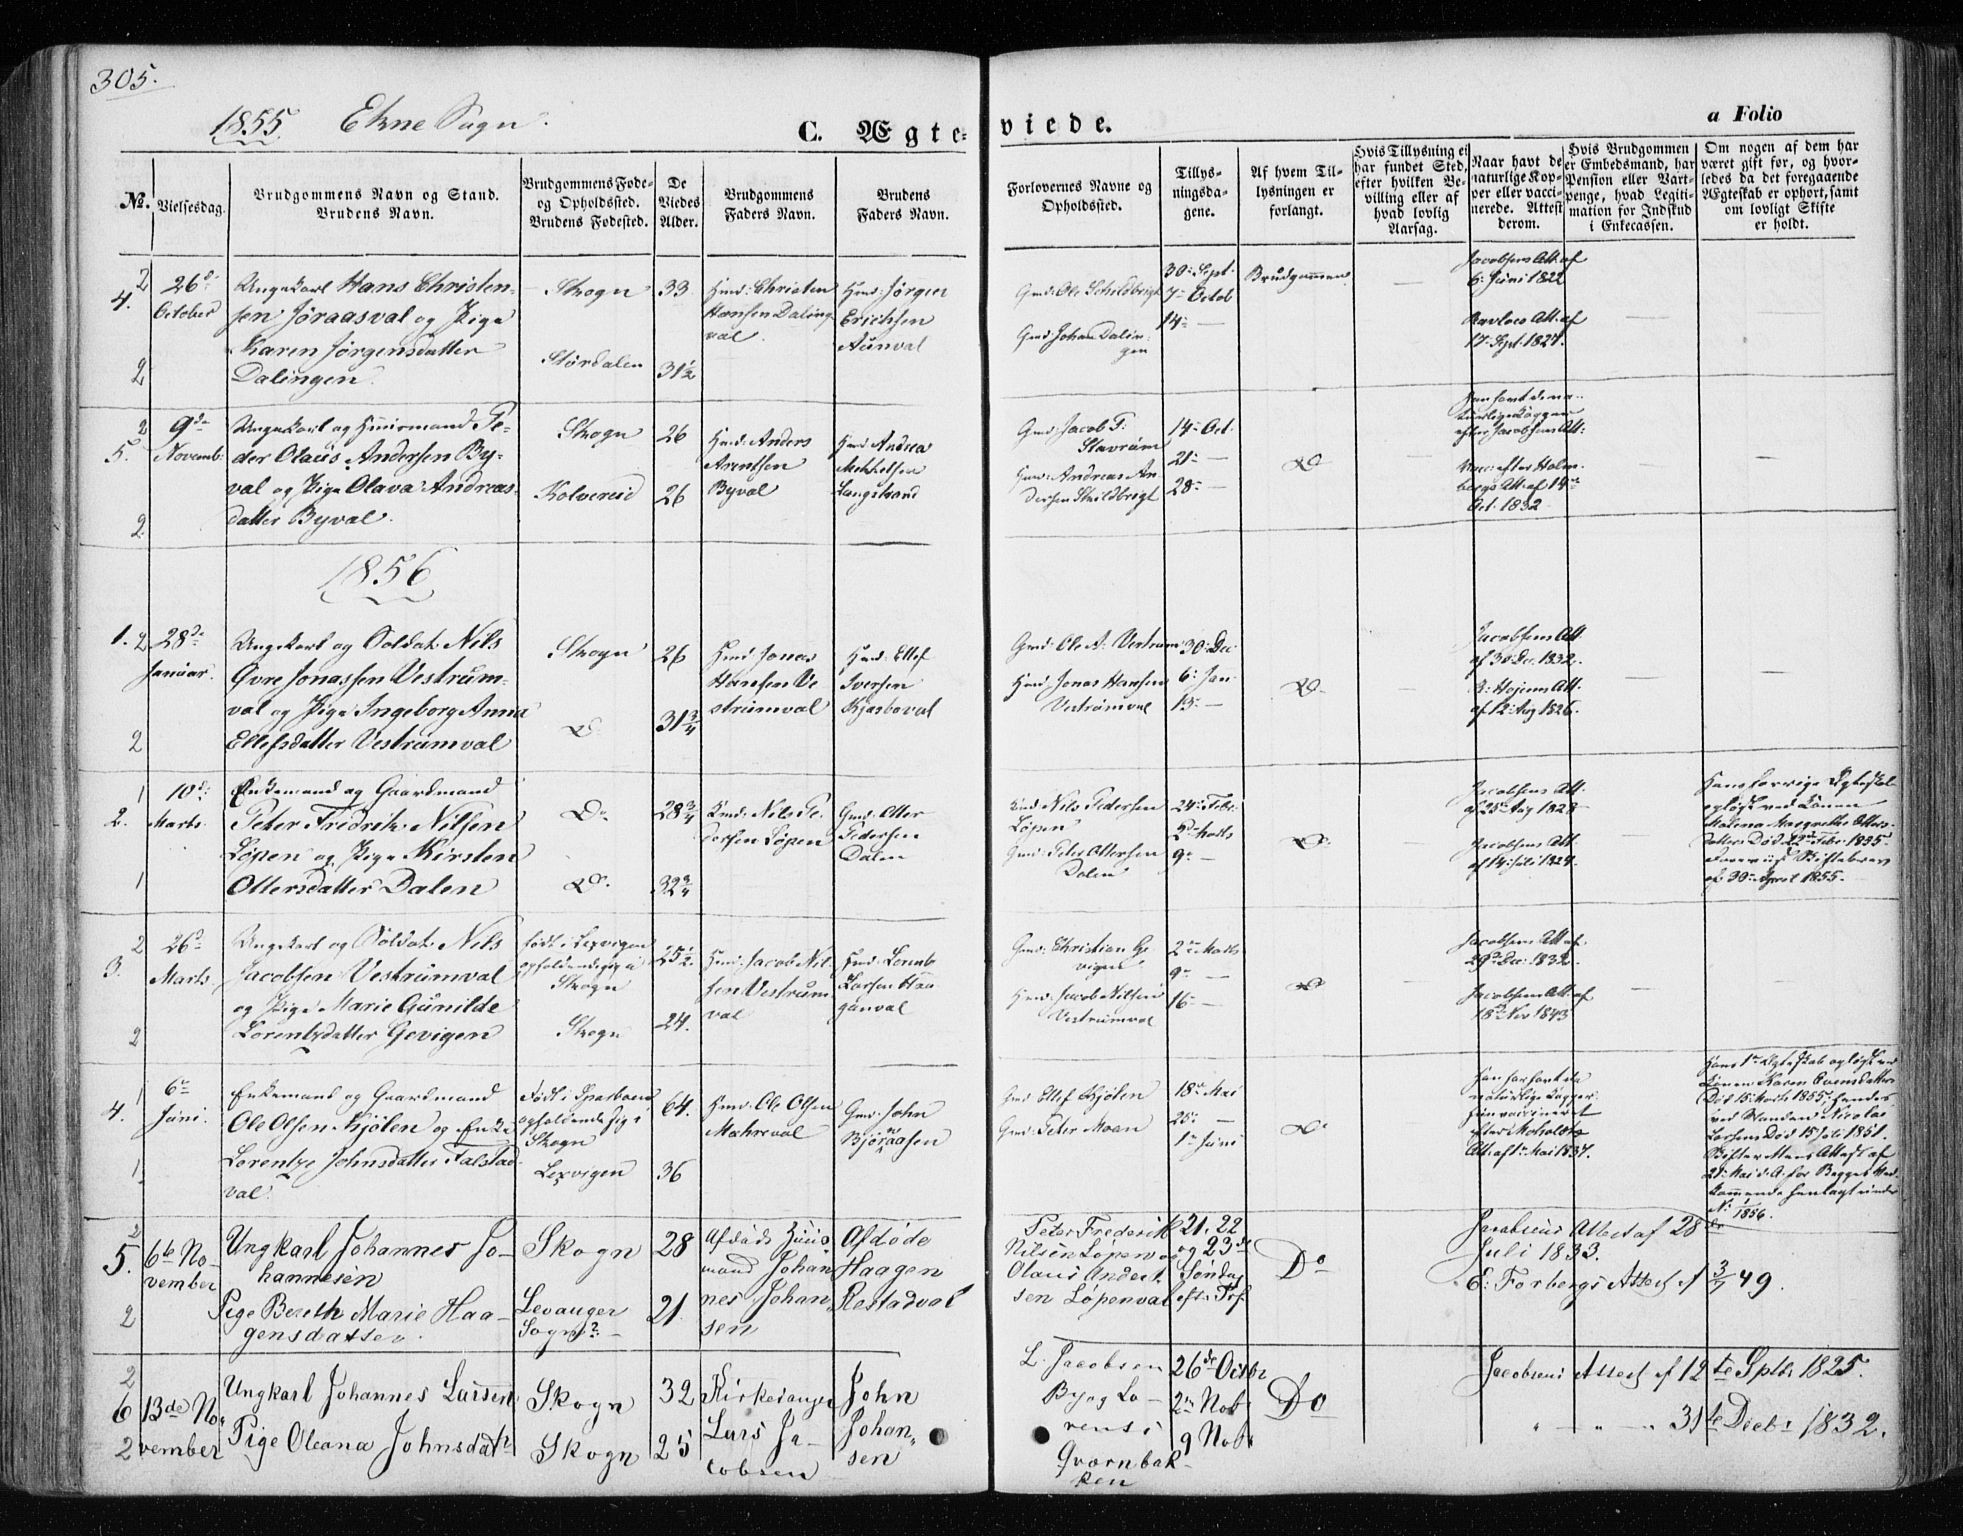 305.
1855 Ekne Sogn.
C. Ægteviede.
a Folio
№.
Vielsesdag.
Brudgommens Navn og Stand.
Brudens Navn.
Brudgommens Føde-
og Opholdssted.
Brudens Fødested.
De
Viedes
Alder.
Brudgommens
Faders Navn.
Brudens
Faders Navn.
Forlovernes Navne og
Opholdssted.
Tillys-
ningsda-
gene.
Af hvem Til-
lysningen er
forlangt.
Hvis Tillysning ei
har fundet Sted,
efter hvilken Be-
villing eller af
hvad lovlig
Aarsag.
Naar havt de
naturlige Kop-
per eller vacci-
nerede. Attest
derom.
Hvis Brudgommen
er Embedsmand, har
Pension eller Vart-
penge, hvad Legiti-
mation for Indskud
i Enkecassen.
Om nogen af dem har
været gift før, og hvor-
ledes da det foregaaende
Ægteskab er ophørt, samt
om lovligt Skifte
er holdt.
2
4.
2
26de
October
Ungekarl Hans Christen-
sen Joraasval og Pige
Karen Jørgensdatter
Dalingen.
Skogn
Størdalen
33
31½
Hmd: Christen
Hansen Daling
val.
Hmd: Jørgen
Erichsen
Aunval
Gmd: Ole Scholdbrigt
Gmd: Johan Dalin-
gen
30: Sept.
7: Octob
14: —
Brudgommen
Jacobsens Att: af
6: Juni 1822
Att: af
17: Sept: 1827.
2
5.
2
9de
Novemb:
Ungekarl og Huusmand Pe-
der Olaus Andersen By-
val og Pige Olava Andreas-
datter Byval.
Skogn
Kolvereid
26
26
Hmd: Anders
Arentsen
Byval
Hmd: Andreas
Mekkelsen
Langstrand
Gmd: Jacob P:
Stavrum
Gmd: Andreas An
dersen Skildbrigt
14: Oct:
21: —
28: —
Do
Han havt de na-
turlige Kopper
efter Jacobsens Att:
Vac: efter Holm-
bergs Att: af 14de
Oct: 1832
1856
1.
2
2
28de
Januar.
Ungekarl og Soldat Nils
Øvre Jonassen Vestrum-
val og Pige Ingeborg Anna
Ellefsdatter Vestrumval
Skogn
Do
26
31¾
Hmd: Jonas
Hansen Ve
strumval
Hmd: Ellef
Iversen
Gmd: Ole A: Vestrum
Hmd: Jonas Hansen
Vestrumval
30: Dec:
6: Jan:
13: —
Do
Jacobsens Att
af 30: Dec: 1832.
R: Hojems Att:
af 12: Aug 1826.
1
2.
1
10de
Marts
Enkemand og Gaardmand
Peter Fredrik Nilsen
Løpen og Pige Kirsten
Ottersdatter Dalen
Do
Do
28¾
32¾
Kmd: Nils Pe-
dersen Løpen
Gmd: Otter
Pedersen
Dalen
Kmd Nils Pedersen
Løpen
Gmd: Peter Ottersen
Dalen
24: Febr:
2de Marts
9: —
Do
Jacobsens Att:
af 25: Aug 1828
Jacobsens Att
af 14: Juli 1824.
Hans forrige Ægteskab
opløst ved Konen
Malena Margrethe Otters-
datters Død 22de Febr: 1855.
Skiftebrev
af 30: April 1855.
2
3.
2
26de
Marts
Ungekarl og Soldat Nils
Jacobsen Vestrumval
og Pige Marie Gunilde
Lorentzdatter Gevigen
født i Lexvigen
opholdende sig i
Skogn
Skogn
25½
24.
Hmd: Jacob Nil-
sen Vestrum-
val
Hmd: Lorentz
Larsen Haa-
ganval
Gmd: Christian Ge-
vigen
Hmd: Jacob Nilsen
Vestrumval
2de Marts
9: —
16: —
Do
Jacobsens Att: af
29: Dec: 1832.
Jacobsens Att: af
18: Nov 1843
1
4.
1
6te
Juni
Enkemand og Gaardmand
Ole Olsen Kjølen og Enke
Lorentze Johnsdatter Falstad-
val.
Født i Sparboen
opholdende sig i
Skogn
Lexvigen
64.
36
Hmd: Ole Olsen
Mæhreval
Gmd: John
Bjøraasen
Gmd Ellef Kjølen
Gmd: Peter Moan
18de Mai
25: —
1te Juni
Do
Han har havt de
naturlige Kopper
hun vaccineret
efter Moholdts
Att: af 1: Mai 1837.
Hans 1te Ægteskab opløst ved
Konen Karen Evensdatters
Død 15 Marts 1855, hendes
ved Manden Nicolai
Larsens Død 15 Juli 1851.
Attest af
28: Mai d: A: for Begges Ved-
kommende henlagt under
N: 1856.
2
5.
2
6te No-
vember
Ungkarl Johannes Jo-
hannesen
Pige Bereth Marie Haa-
gensdatter.
Skogn
Levanger
Sogn?
28
21.
Afdøde Huus-
mand Johan
nes Johan-
sen
Afdøde
Haagen
Restadval
Peter Frederik
Nilsen Løpen og
Olaus Andert-
sen Løpenval
21. 22
og 23de
Søndag
eft: Trf.
Do
Jacobsens Attest af 28de
Juli 1833.
E: Forbergs Attest af 3/7 49.
2
6
2
13de No-
vember
Ungkarl Johannes Larsen
Pige Oleana Johnsdatr
Skogn
Skogn
32
25
Kirkesanger
Lars Ja-
cobsen
John
Johan-
sen
L. Jacobsen
By og Lo-
rents
Qværnbak-
ken
26de Octbr
2de Nob
9 Nob
Do
Jacobsens Attest af 12te Sptb: 1825.
" — " — 31te Decb: 1832.